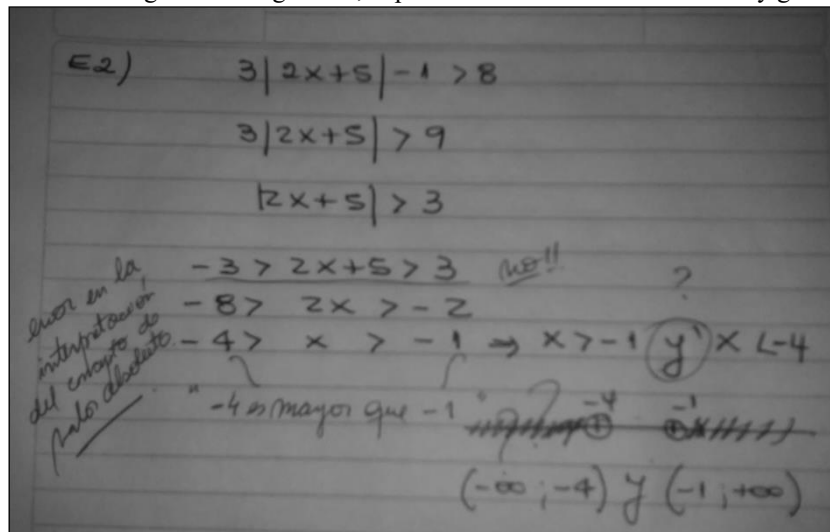 E2) 3|2x+5|-1 >8
3|2x+5| > 9
|2x+5| > 3
-3 > 2x+5 > 3 no!!
-8> 2x > -2 ?
-4> x > -1 ⇒ x>-1 y x <-4
error en la
interpretación
del concepto de
valor absoluto.
"-4 es mayor que -1" ?
-4 -1
(-∞; -4) y (-1; +∞)